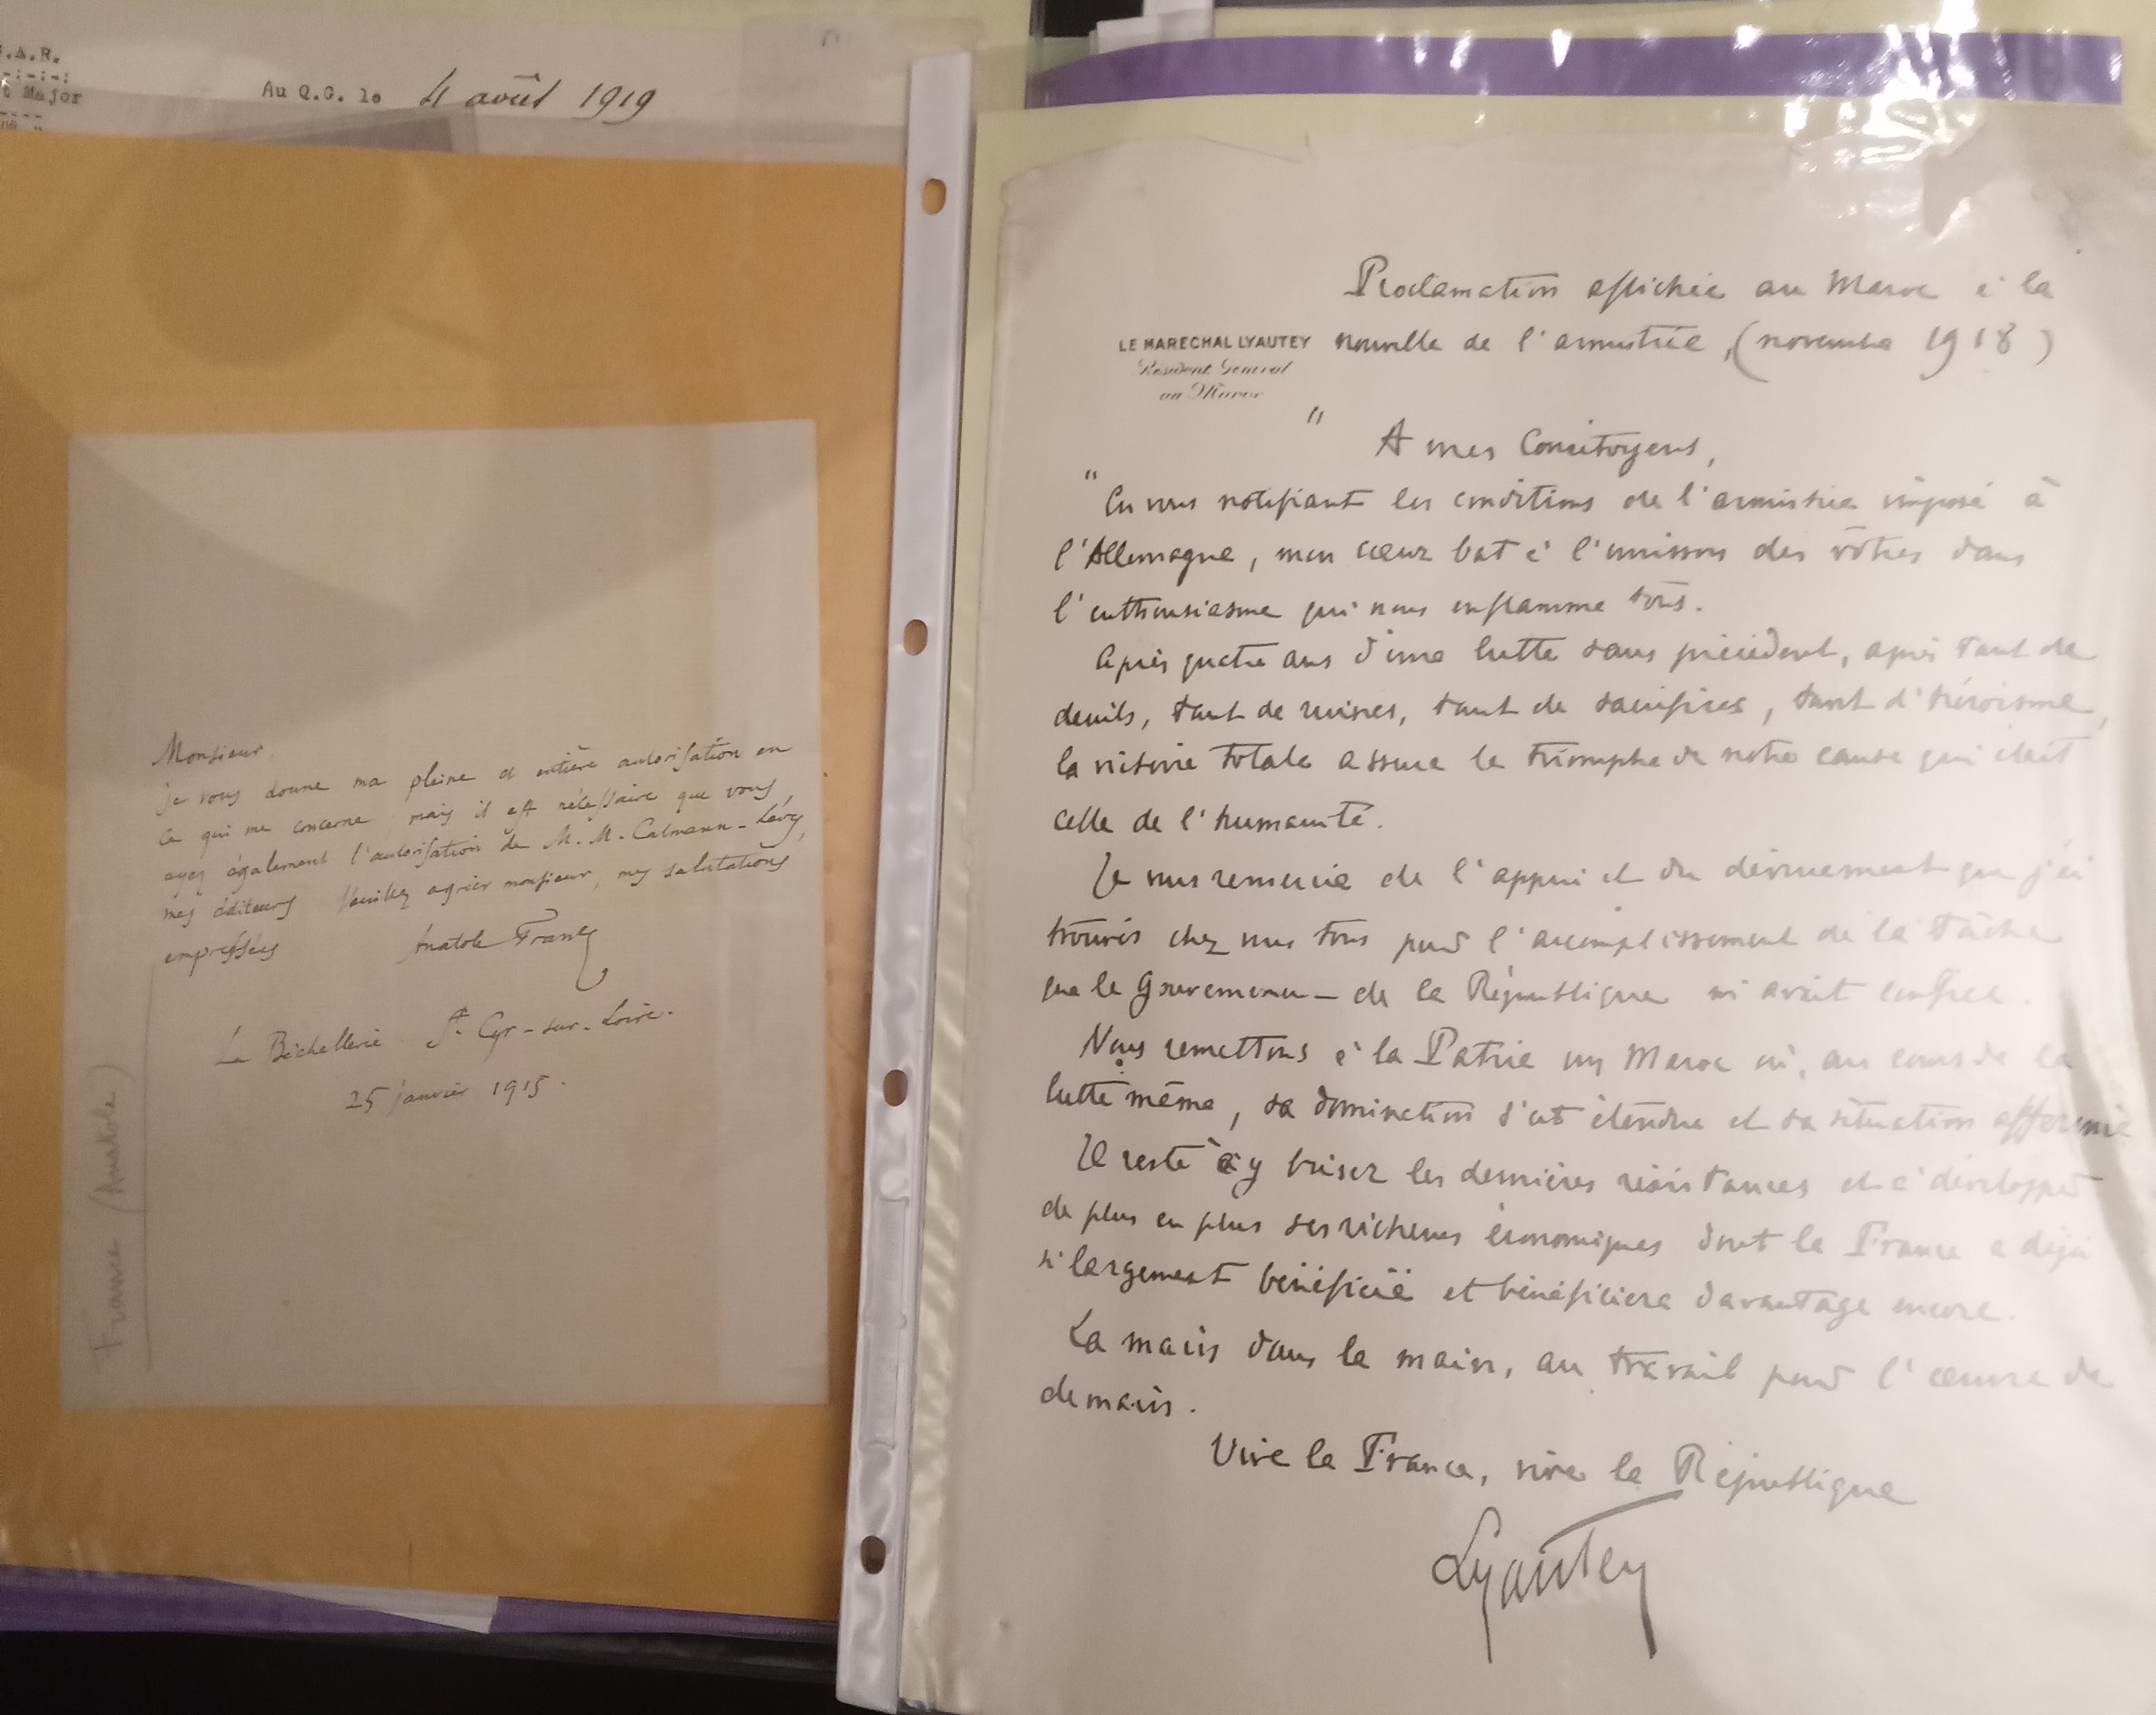 .A.R.
-:-:-:
t Major
----
Au Q.G. le 4 août 1919
Monsieur,
je vous donne ma pleine et entière autorisation en
ce qui me concerne mais il est nécessaire que vous
ayez également l'autorisation de M. M. Calmann-Lévy,
mes éditeurs Veuillez agréer monsieur, mes salutations
empressées Anatole France
La Béchellerie St Cyr-sur-Loire.
25 janvier 1915.
France (Anatole)
Proclamation affichée au Maroc à la
LE MARECHAL LYAUTEY nouvelle de l'armistice, (novembre 1918)
Résident Général
au Maroc
" A mes Concitoyens,
" En vous notifiant les conditions de l'armistice imposé à
l'Allemagne, mon cœur bat à l'unisson des vôtres dans
l'enthousiasme qui nous enflamme tous.
Après quatre ans d'une lutte sans précédent, après tant de
deuils, tant de ruines, tant de sacrifices, tant d'héroïsme,
la victoire totale assure le triomphe de notre cause qui était
celle de l'humanité.
Je vous remercie de l'appui et du dévouement que j'ai
trouvés chez vous tous pour l'accomplissement de la tâche
que le Gouvernement de la République m'avait confiée.
Nous remettons à la Patrie un Maroc où, au cours de la
lutte même, sa domination s'est étendue et sa situation affermie
Il reste à y briser les dernières résistances et à développer
de plus en plus ses richesses économiques dont la France a déjà
si largement bénéficié et bénéficiera davantage encore.
La main dans la main, au travail pour l'œuvre de
demain.
Vive la France, vive la République
Lyautey